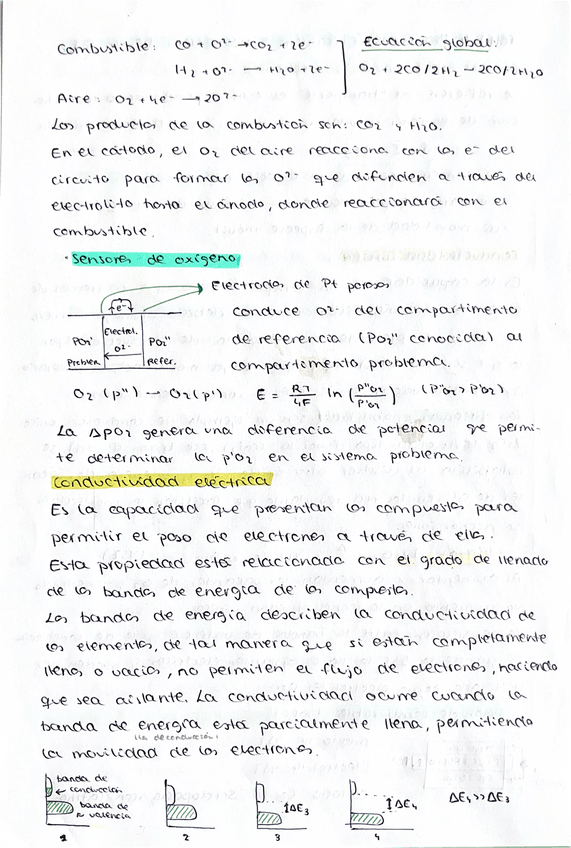 Combustible: CO + O²⁻ → CO₂ + 2e⁻
H₂ + O²⁻ → H₂O + 2e⁻
Aire: O₂ + 4e⁻ → 2O²⁻
Ecuación global:
O₂ + 2CO/2H₂ → 2CO/2H₂O
Los productos de la combustión son: CO₂ y H₂O.
En el cátodo, el O₂ del aire reacciona con los e⁻ del
circuito para formar los O²⁻ que difunden a través del
electrolito hasta el ánodo, donde reaccionará con el
combustible.
· Sensores de oxígeno
Electrodos de Pt poroso
conduce O²⁻ del compartimento
de referencia (PO₂" conocida) al
compartimento problema.
e⁻
PO₂'
Problem.
Electrol.
O²⁻
PO₂"
Refer.
O₂ (p") → O₂ (p') E = RT/4F ln (P"O₂/P'O₂) (P"O₂ > P'O₂)
La ΔPO₂ genera una diferencia de potencial que permi-
te determinar la p'O₂ en el sistema problema.
Conductividad eléctrica
Es la capacidad que presentan los compuestos para
permitir el paso de electrones a través de ellos.
Esta propiedad está relacionada con el grado de llenado
de las bandas de energía de los compuestos.
Las bandas de energía describen la conductividad de
los elementos, de tal manera que si están completamente
llenas o vacías, no permiten el flujo de electrones, haciendo
que sea aislante. La conductividad ocurre cuando la
banda de energía está parcialmente llena, permitiendo
(la de conducción)
la movilidad de los electrones.
banda de
conducción
banda de
valencia
1
2
ΔE₃
3
ΔE₄
4
ΔE₄ >> ΔE₃